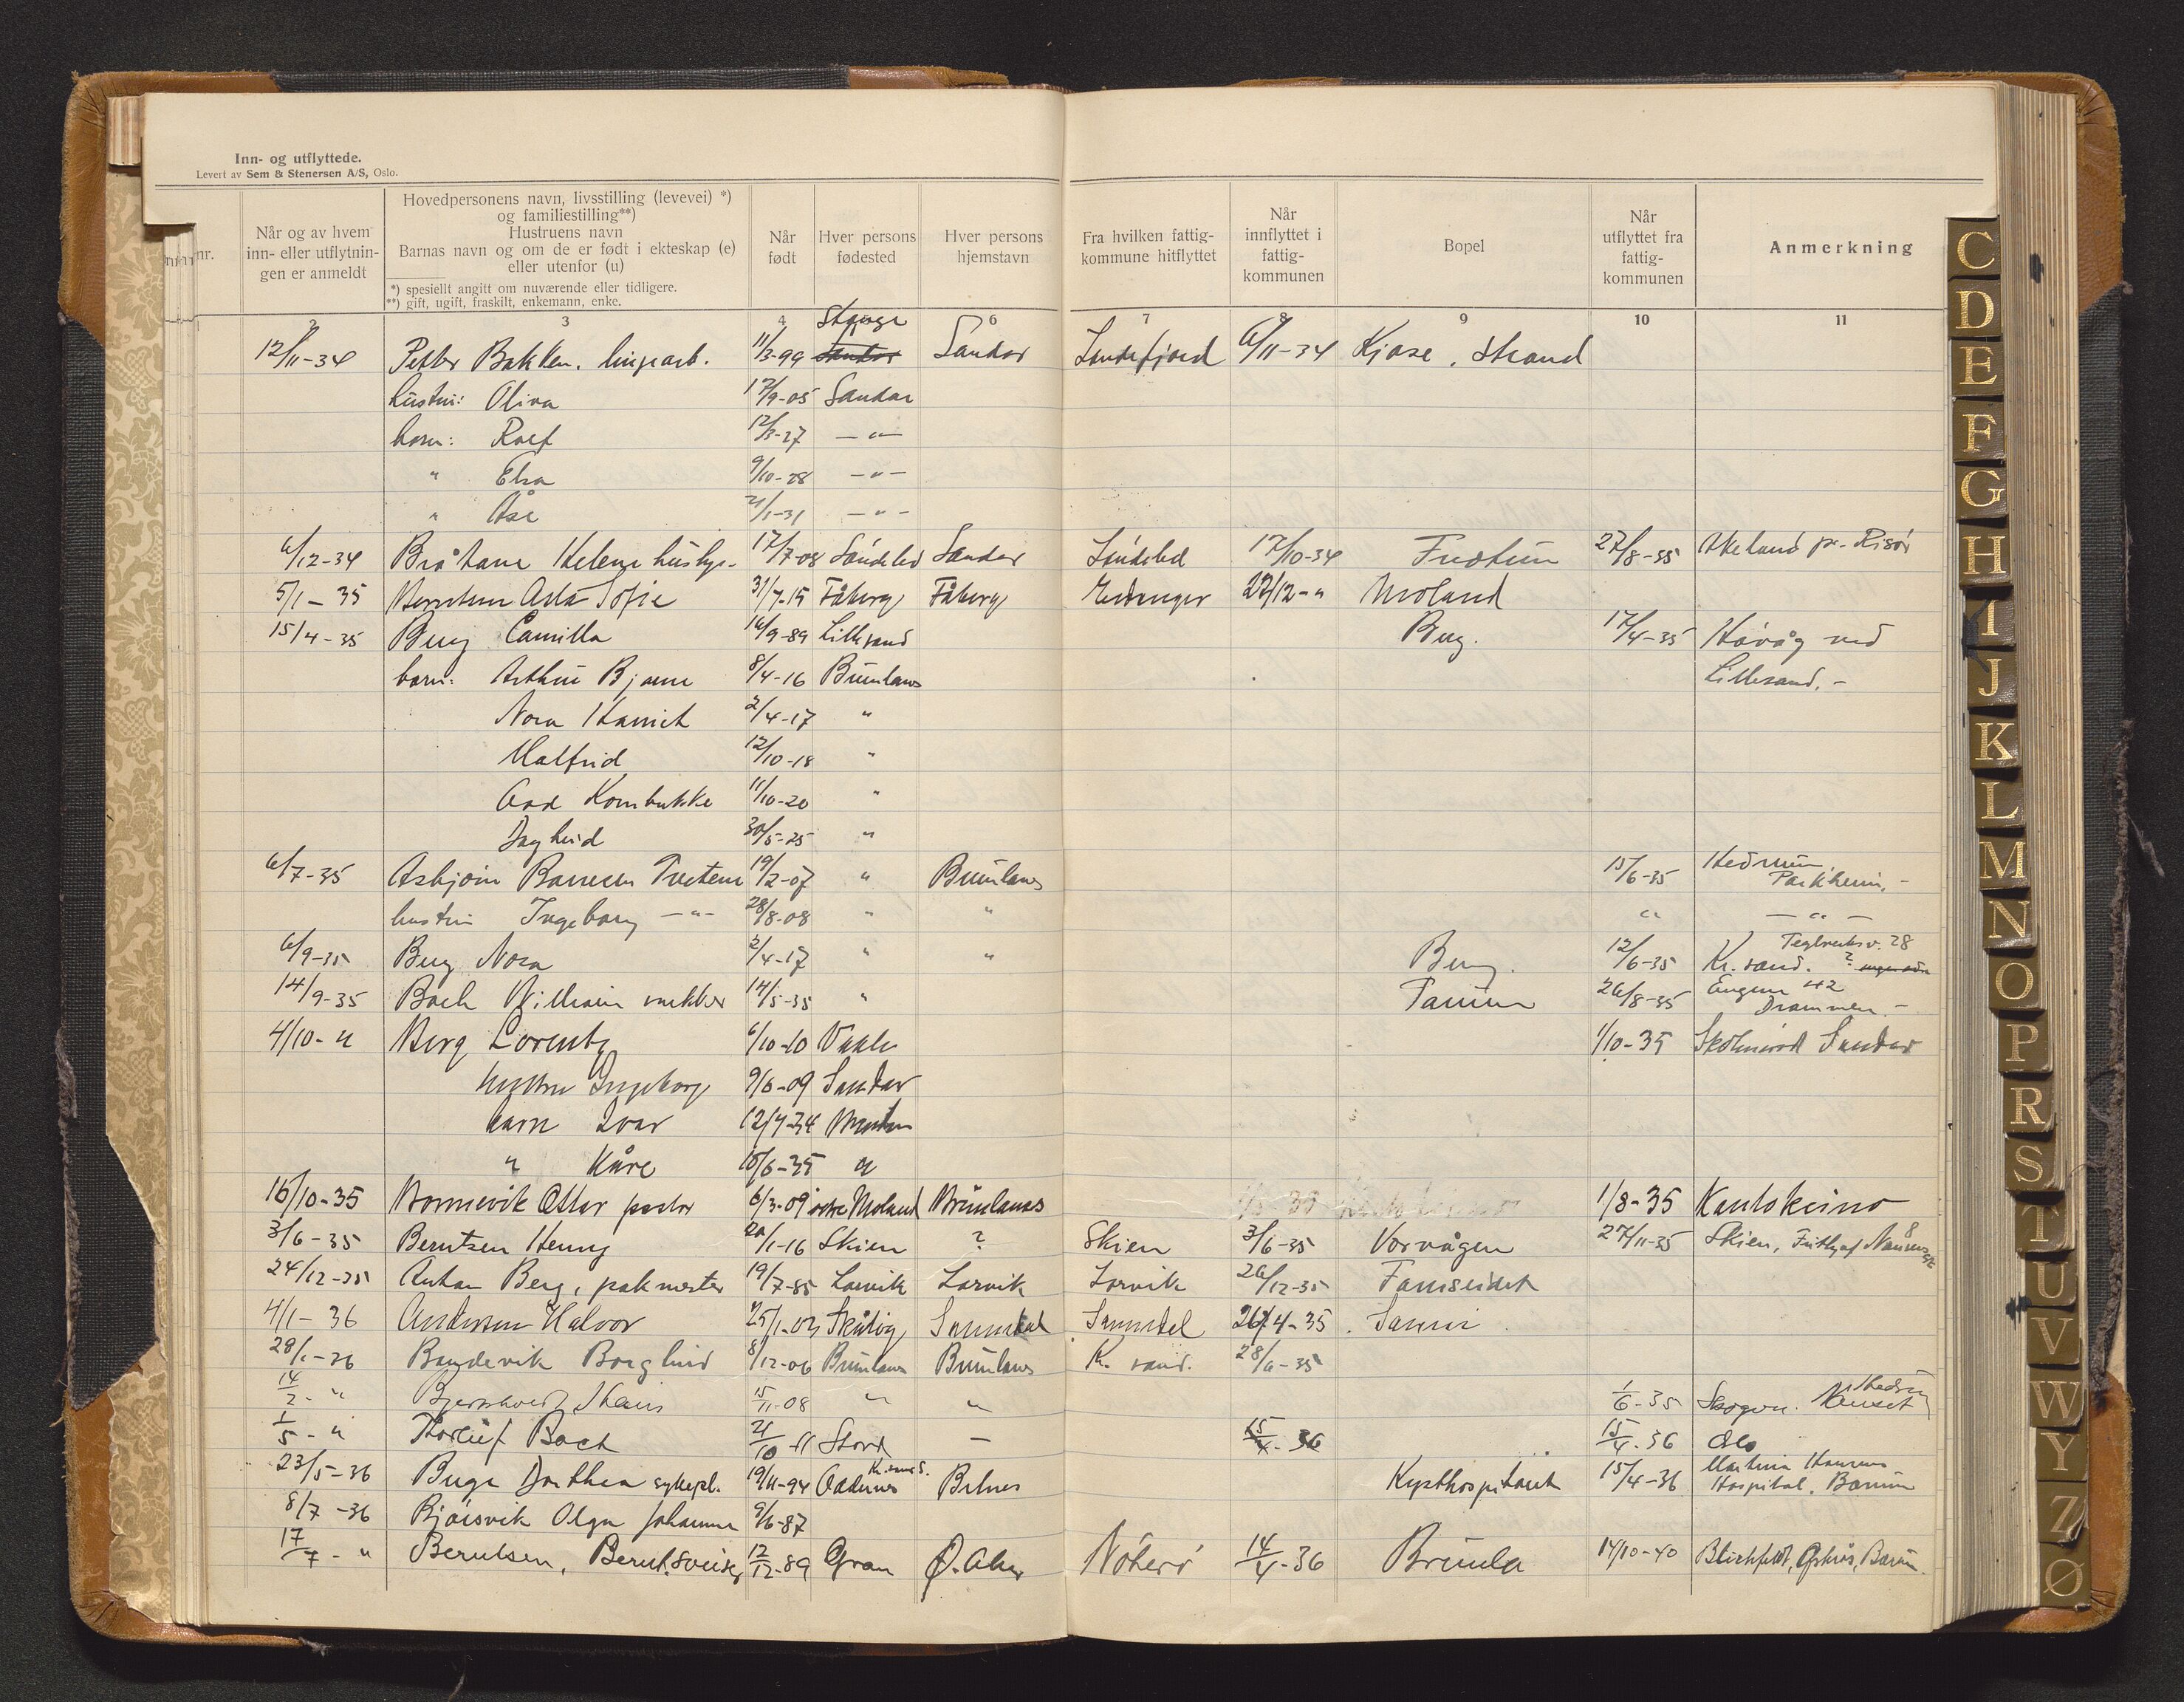 Inn- og utflyttede.
Levert av Sem & Stenersen A/S, Oslo.
nr.
Når og av hvem
inn- eller utflytnin-
gen er anmeldt
Hovedpersonens navn, livsstilling (levevei) *)
og familiestilling**)
Hustruens navn
Barnas navn og om de er født i ekteskap (e)
eller utenfor (u)
*) spesiellt angitt om nuværende eller tidligere.
**) gift, ugift, fraskilt, enkemann, enke.
Når
født
Hver persons
fødested
Hver persons
hjemstavn
Fra hvilken fattig-
kommune hitflyttet
Når
innflyttet i
fattig-
kommunen
Bopel
Når
utflyttet fra
fattig-
kommunen
Anmerkning
2 3 4 6 7 8 9 10 11
Stange
12/11-34 Petter Bakken. 11/3-99 Sandar Sandar Sandefjord 6/11-34 Kjose, Strand
hustru: Oliva 17/9-05 Sandar
barn: Rolf 12/3-27 — " —
" Elsa 9/10-28 — " —
" Åse 21/1-31 — " —
6/12-34 Bråtane Helene 17/7-08 Søndeled Sandar Søndeled 17/10-34 27/8-35 Akeland pr. Risør
5/1-35 Berntsen Asta Sofie 31/7-15 Fåberg Fåberg 27/12-" Moland
15/4-35 Berg Camilla 16/9-89 Lillesand Berg. 17/4-35 Høvåg ved
barn: Arthur Bjarne 8/4-16 Brunlanes Lillesand. -
Nora Harriet 2/4-17 "
Halfrid 12/10-18 "
Aod Kornbukke 11/10-20 "
Daghild 30/5-25 "
6/7-35 Asbjørn Tvetene 19/2-07 " Brunlanes 15/6-35 Hedrum,
Parkheim. -
hustru Ingeborg — " — 28/8-08 " " " — " —
6/9-35 Berg Nora 2/4-17 " " Berg. 12/6-35 Kr. sand. Teglverksv. 28
14/9-35 Bach William 14/5-35 " Tanum 26/8-35 Engene 42
Drammen. -
4/10-" Berg Lorentz 6/10-10 Våle 1/10-35 Sandar
hustru Ingeborg 9/6-09 Sandar
barn Ivar 12/7-34
" Kåre 10/6-35 "
16/10-35 Bornevik Ottar pastor 6/3-09 østre Moland Brunlanes 1/8-35 Kautokeino
3/6-35 Berntsen Henry 20/1-16 Skien ? Skien 3/6-35 Vorvågen 27/11-35 Skien, Fritjof Nansens
24/12-35 Anton Berg, pakmester 19/7-85 Larvik Larvik Larvik 26/12-35
4/1-36 Andersen Halvor 25/1-03 Skåtøy Sannidal Sannidal 26/4-35
28/1-36 Borghild 8/12-06 Brunlanes Brunlanes Kr. sand. 28/6-35
14/2-" 15/11-08 " " 1/6-35 Skogen. Hedrum
1/5-" Thorleif Bach 21/10-11 Stord — 15/4-36 15/4-36 Oslo
23/5-36 Buge Dorthea sykepl. 19/11-94 Oddernes Kr.sand S. Kysthospitalet 15/4-36 Martina Hansens
Hospital. Bærum
8/7-36 Bjørsvik Olga Johanne 9/6-87
17/7-" Berntsen, Bernt. 12/12-89 Gran Ø. Aker Nøterø 14/4-36 Brunla 14/10-40 Bærum.
C
D
E
F
G
H
I
J
K
L
M
N
O
P
R
S
T
U
V
W
Y
Z
Ø